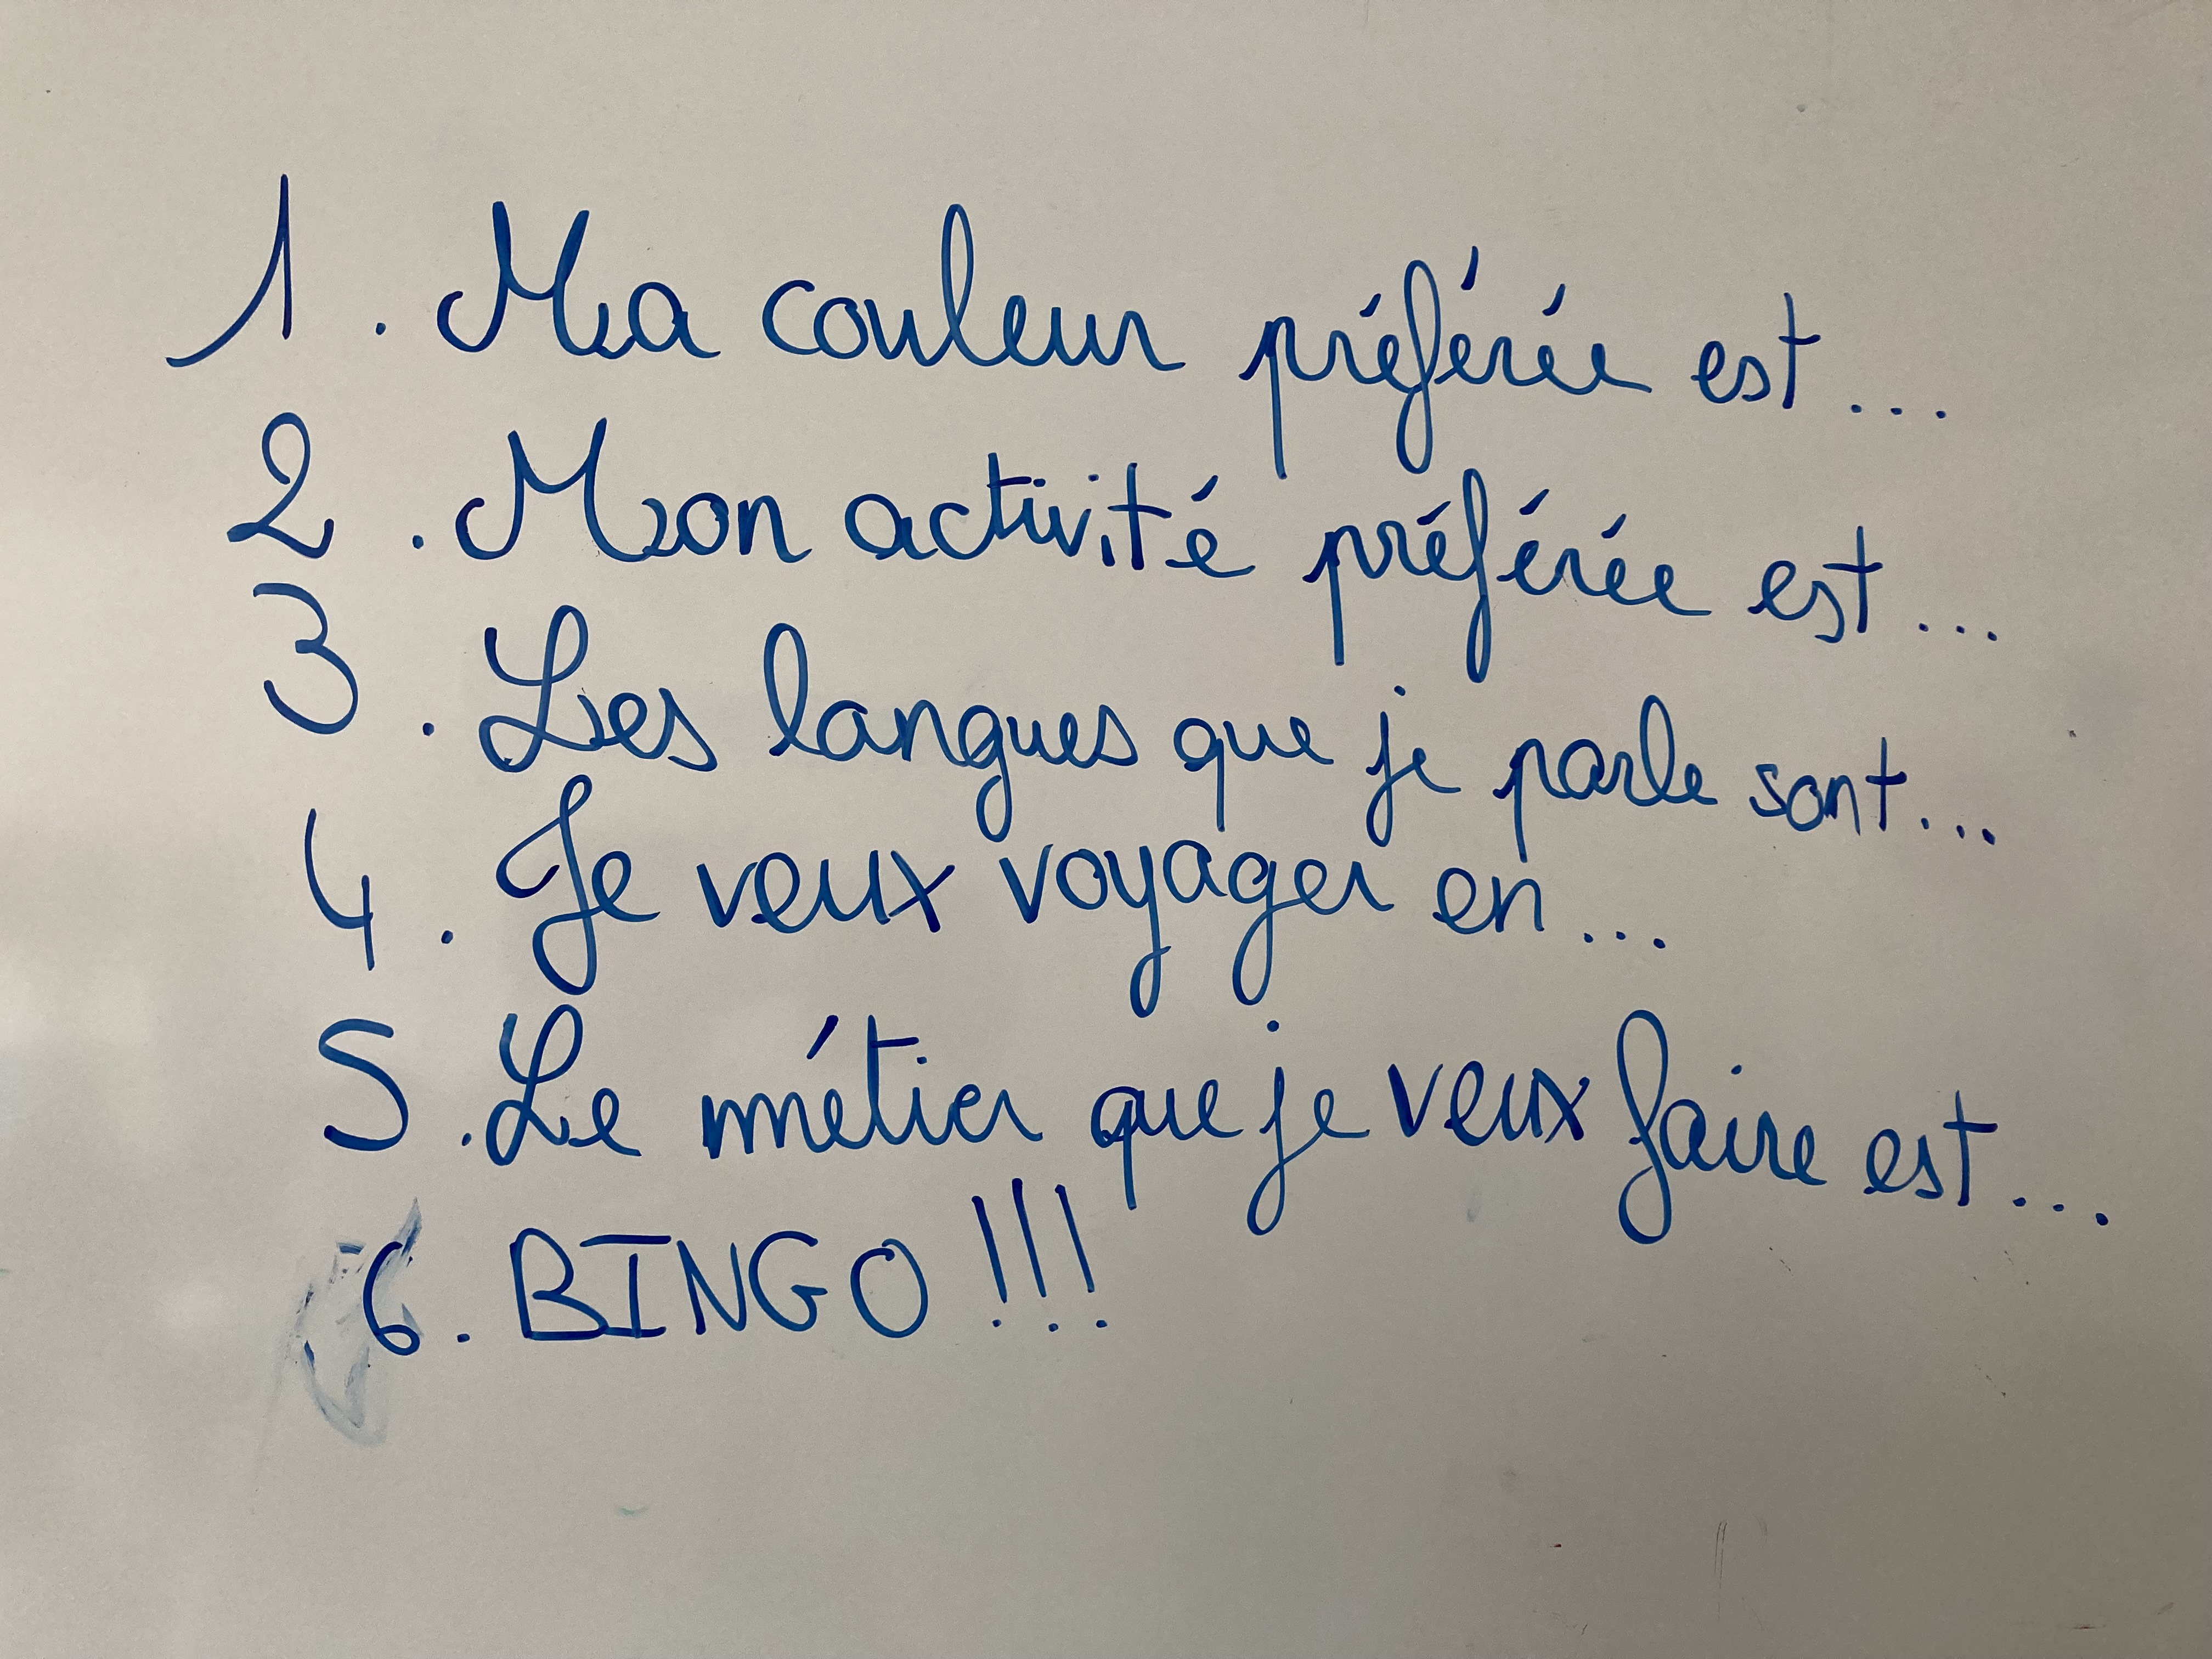 1. Ma couleur préférée est...
2. Mon activité préférée est...
3. Les langues que je parle sont...
4. Je veux voyager en...
5. Le métier que je veux faire est...
6. BINGO !!!